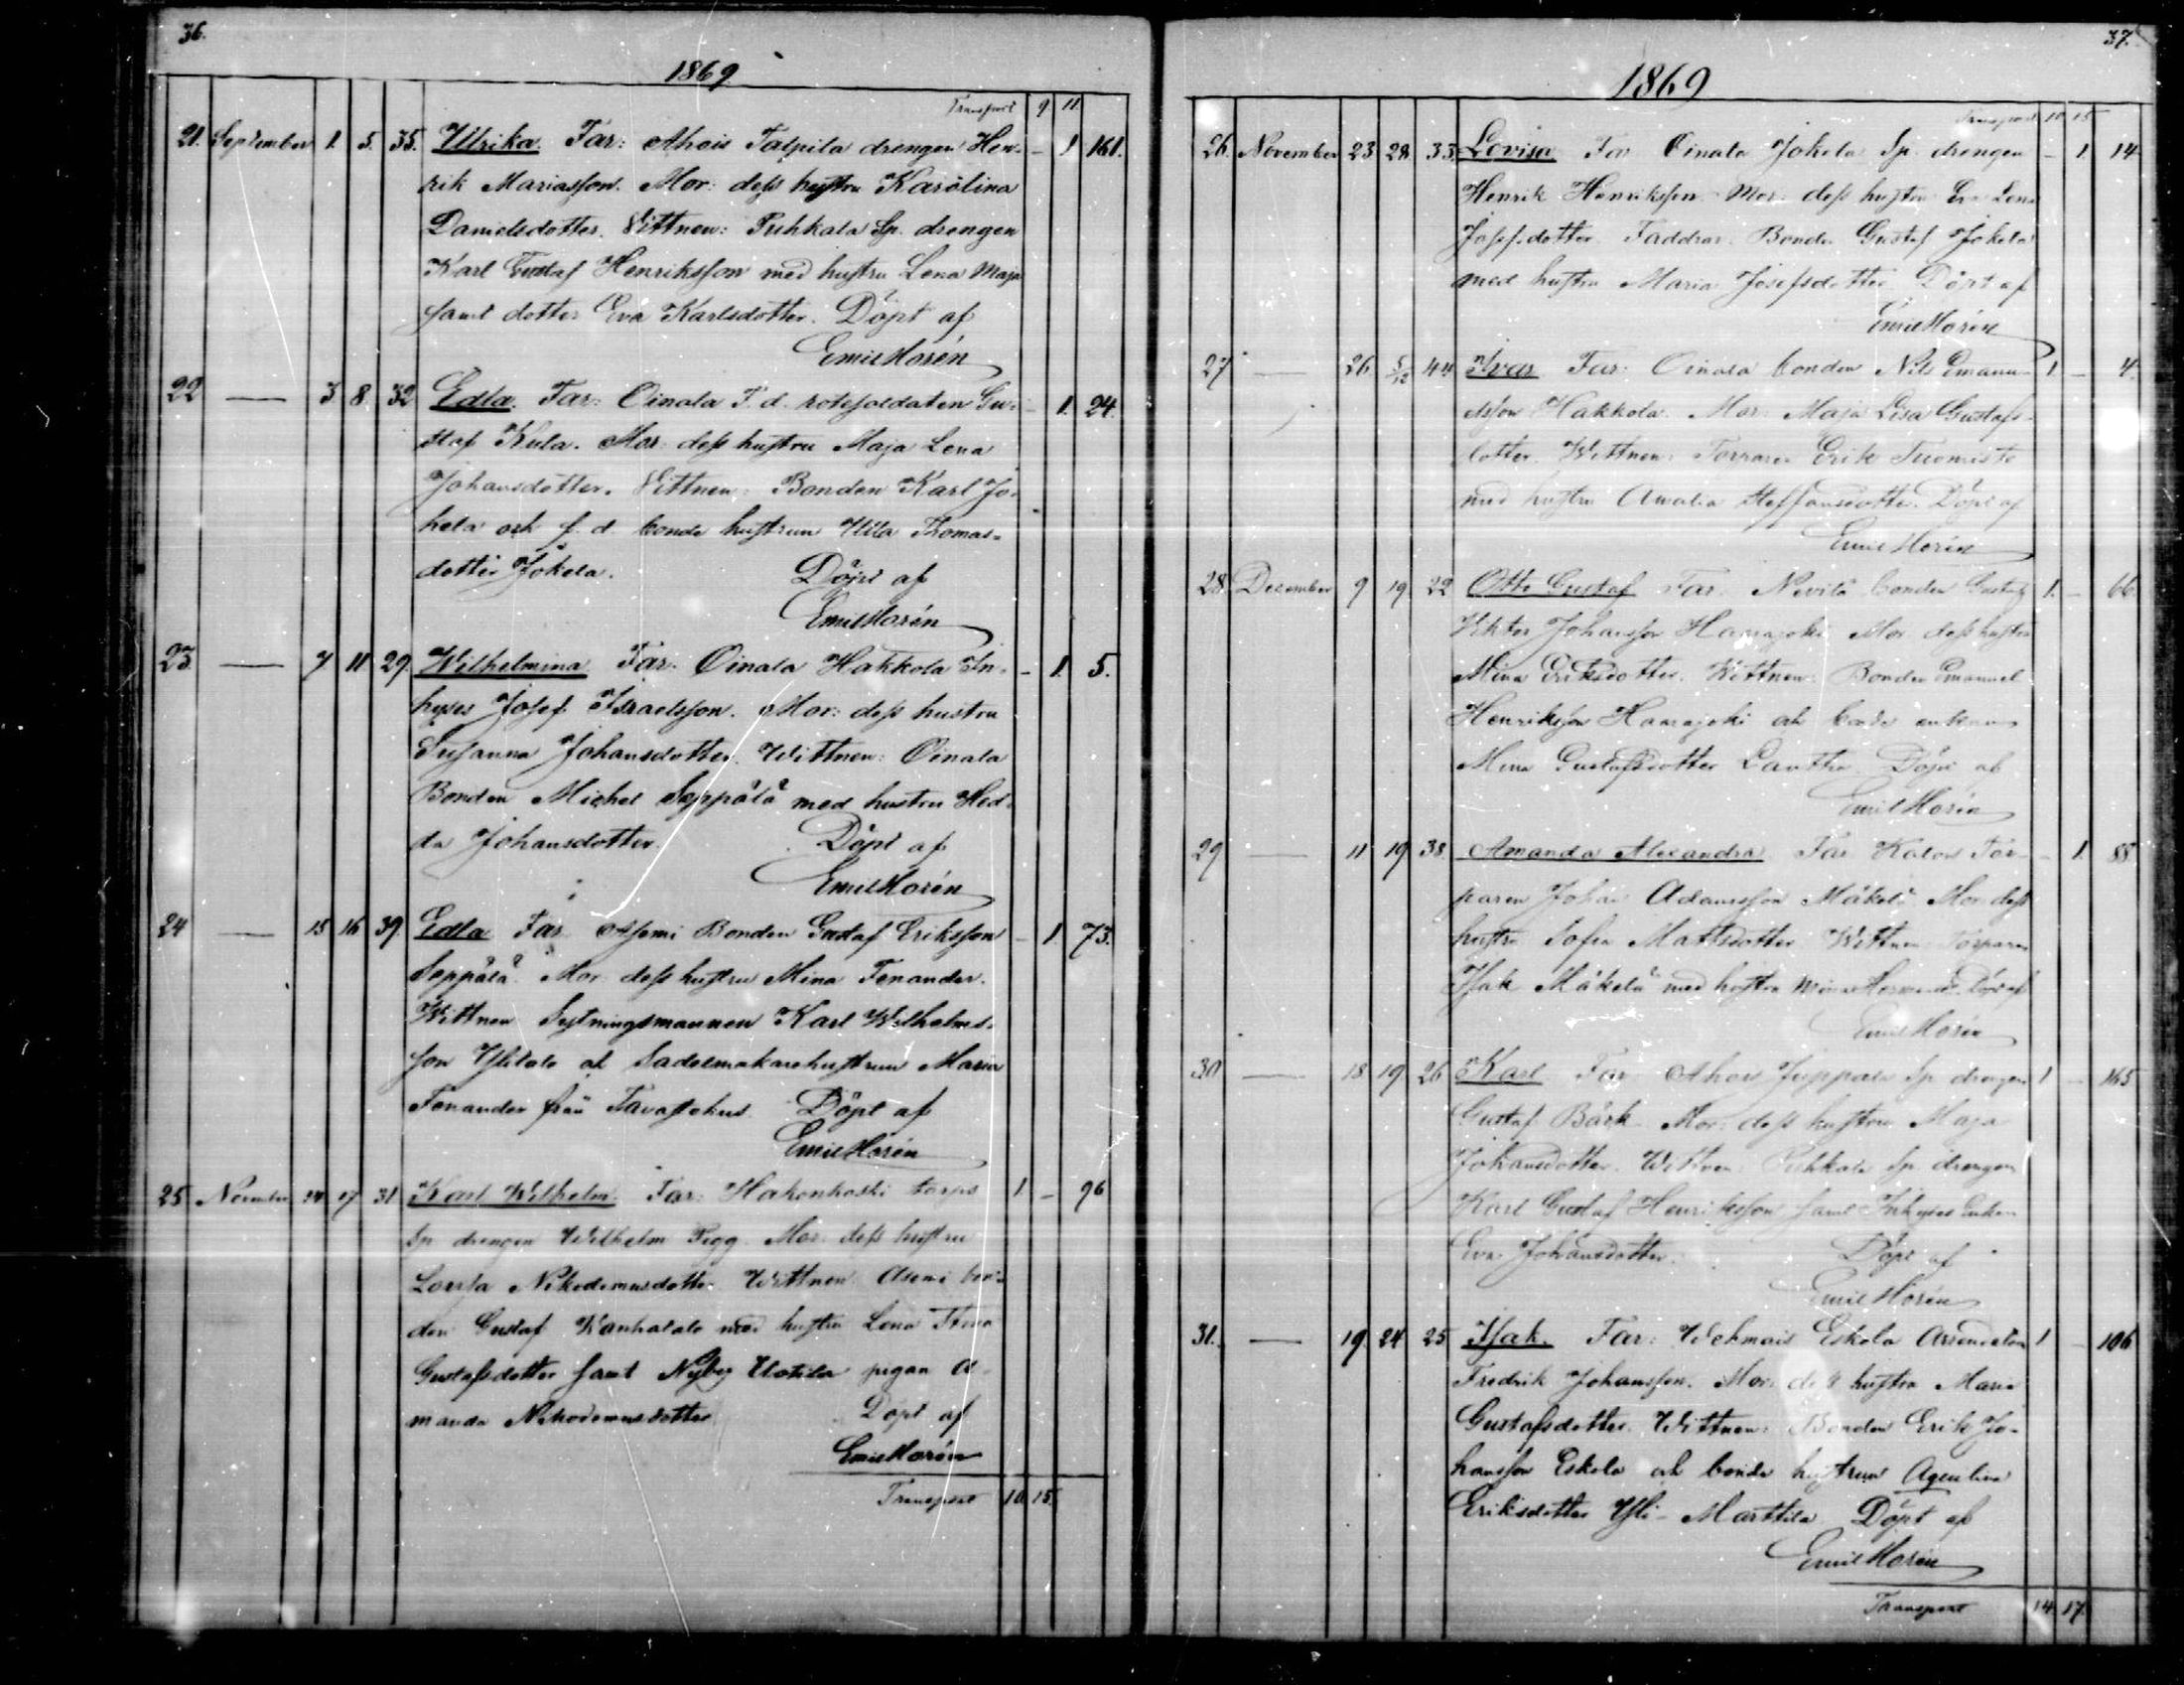 36.
1869
Transport 9 11.
21. September 1. 5. 35. Ulrika. Far: Ahois Talpila drengen Hen- - 1 161.
rik Mariasson. Mor: dess hustru Karolina
Danielsdotter. Vittnen: Puhkala Sp. drengen
Karl Gustaf Henriksson med hustru Lena Maja
samt dotter Eva Karlsdotter. Döpt af
Emil Horén
22 — 3 8 32 Edla. Far: Oinala F. d. rotesoldaten Gu- - 1. 24.
staf Kula. Mor: dess hustru Maja Lena
Johansdotter. Vittnen: Bonden Karl Jo-
kela och f. d. bonde hustrun Ulla Thomas-
dotter Jokela. Döpt af
Emil Horén
23. — 7 11 29 Wilhelmina Far: Oinala Hakkola In- - 1. 5.
hyses Josef Israelsson. Mor: dess hustru
Susanna Johansdotter. Wittnen: Oinala
Bonden Michel Seppälä med hustru Hed-
da Johansdotter. Döpt af
Emil Horén
24 — 15 16 39. Edla Far Asemi Bonden Gustaf Eriksson - 1. 73.
Seppälä. Mor dess hustru Mina Fenander.
Wittnen Sytningsmannen Karl Wilhelms-
son Ylitalo och Sadelmakarehustrun Maria
Fenander från Tavastehus. Döpt af
Emil Horén
25 November 24 27 31 Karl Wilhelm. Far: Hakonkoski torps 1. - 96
Sp drengen Wilhelm Pigg. Mor: dess hustru
Lovisa Nikodemusdotter. Wittnen Asemi bon-
den Gustaf Wanhatalo med hustru Lena Stina
Gustafsdotter samt Nyby Uotila pigan A-
manda Nikodemusdotter Döpt af
Emil Horén
Transport 10. 15.
37.
1869
Transport 10 15
26. November 23 28 33. Lovisa Far Oinala Jokela Sp. drengen - 1. 14
Henrik Henriksson Mor: dess hustru Eva Lena
Josefsdotter. Faddrar. Bonden Gustaf Jokela
med hustru Maria Josefsdotter Döpt af
Emil Horén
27 — 26 5/12 44 Ivar Far: Oinala bonden Nils Emanu- 1 - 4.
elsson Hakkola. Mor: Maja Lisa Gustafs-
dotter. Wittnen: Torparen Erik Tuomisto
med hustru Amalia Steffansdotter. Döpt af
Emil Horén
28. December 9 19 22 Otto Gustaf Far. Nevilä bonden Gustaf 1. - 66.
Viktor Johansson Haarajoki Mor dess hustru
Mina Eriksdotter. Wittnen: Bonden Emanuel
Henriksson Haarajoki och bonde enkan
Mina Gustafsdotter Lauttia. Döpt af
Emil Horén
29 — 11 19 38. Amanda Alexandra Far Kalon Tor- - 1. 88
paren Johan Adamsson Mäkelä Mor dess
hustru Sofia Mattsdotter Wittnen Torparen
Isak Mäkelä med hustru Döpt af
Emil Horén
30 — 18 19 26 Karl Far Ahois Juppala Sp drengen 1 - 165
Gustaf Bäck Mor: dess hustru Maja
Johansdotter. Wittnen: Puhkala Sp. drengen
Karl Gustaf Henriksson samt Inhyses enkan
Eva Johansdotter. Döpt af
Emil Horén
31. — 19. 24 25 Isak. Far: Wehmais Eskola Arrendatorn 1 - 106
Fredrik Johansson. Mor: dess hustru Maria
Gustafsdotter. Wittnen: Bonden Erik Jo-
hansson Eskola och bonde hustrun Agculina
Eriksdotter Yli-Marttila Döpt af
Emil Horén
Transport 14. 17.